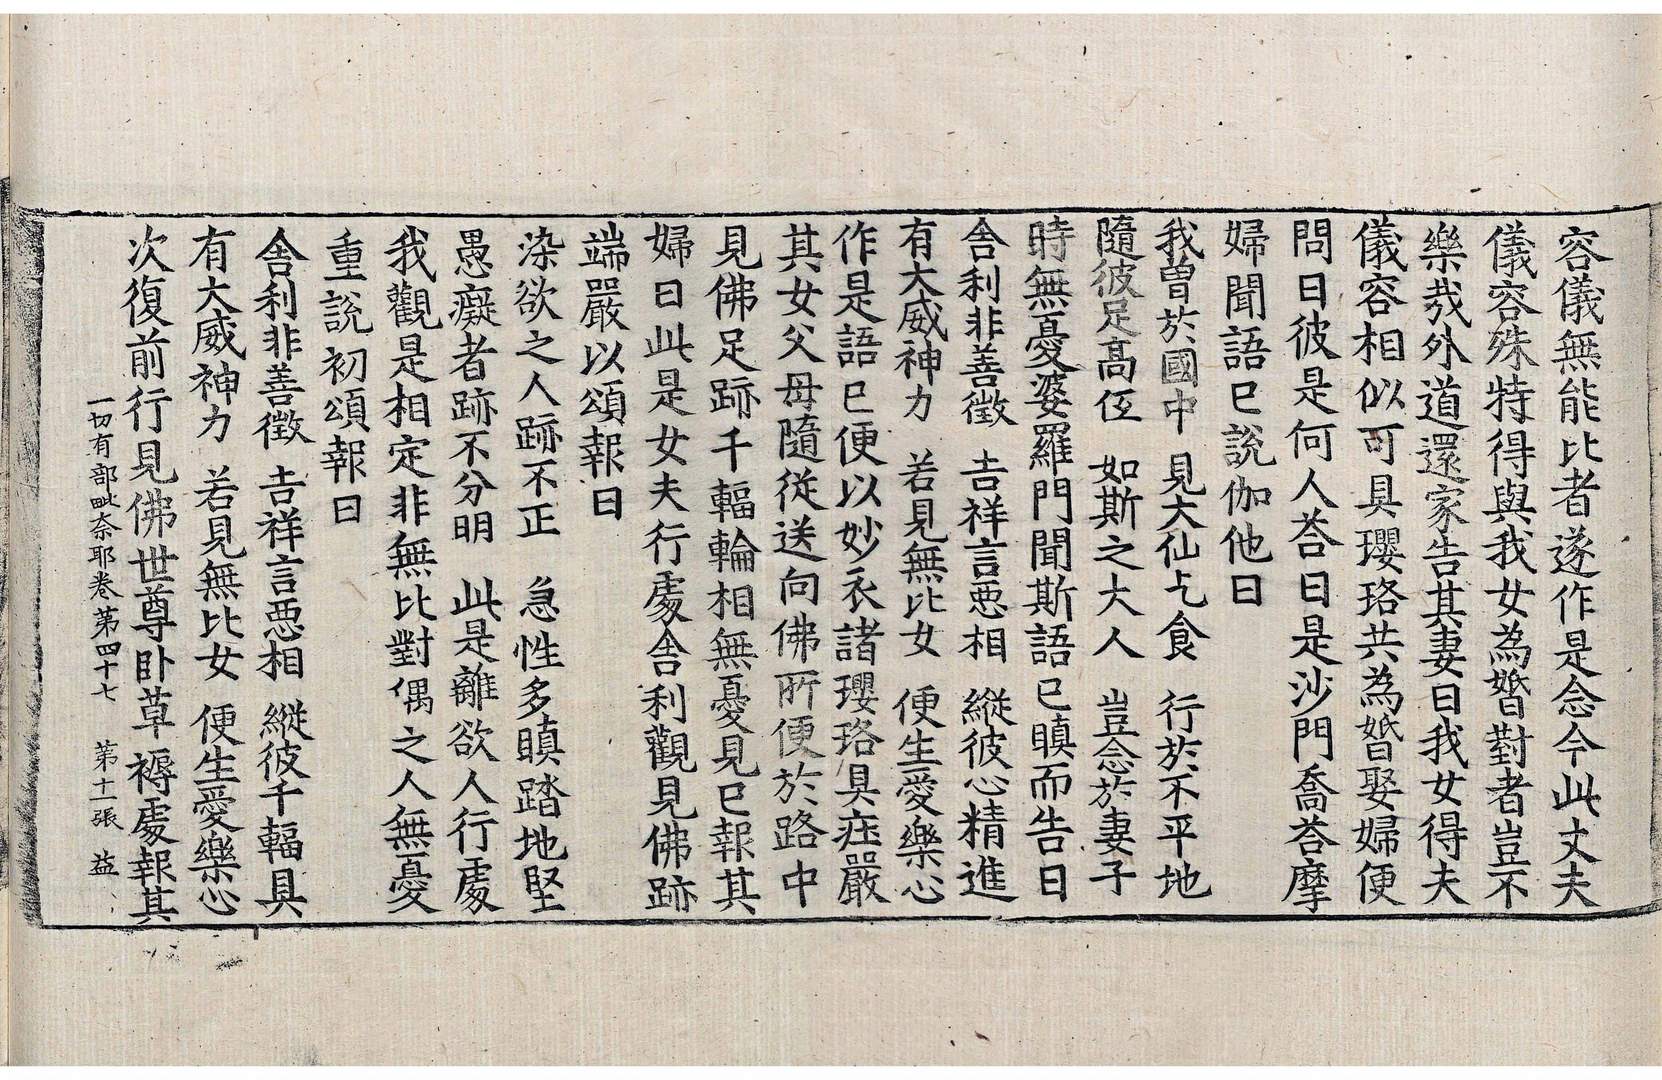 容儀無能比者遂作是念今此丈夫
儀容殊特得與我女為婚對者豈不
樂哉外道還家告其妻曰我女得夫
儀容相似可具瓔珞共為婚娶婦便
問曰彼是何人荅曰是沙門喬荅摩
婦聞語已說伽他曰
我曾於國中 見大仙乞食 行於不平地
隨彼足高伾 如斯之大人 豈念於妻子
時無憂婆羅門聞斯語已瞋而告曰
舎利非善徵 吉祥言惡相 縱彼心精進
有大威神力 若見無比女 便生愛樂心
作是語已便以妙衣諸瓔珞具莊嚴
其女父母隨從送向佛所便於路中
見佛足跡千輻輪相無憂見已報其
婦曰此是女夫行處舎利觀見佛跡
端嚴以頌報曰
染欲之人跡不正 急性多瞋踏地堅
愚癡者跡不分明 此是離欲人行處
我觀是相定非無比對偶之人無憂
重說初頌報曰
舎利非善徵 吉祥言惡相 縱彼千輻具
有大威神力 若見無比女 便生愛樂心
次復前行見佛世尊卧草褥處報其
一切有部毗奈耶卷第四十七 第十一張 益